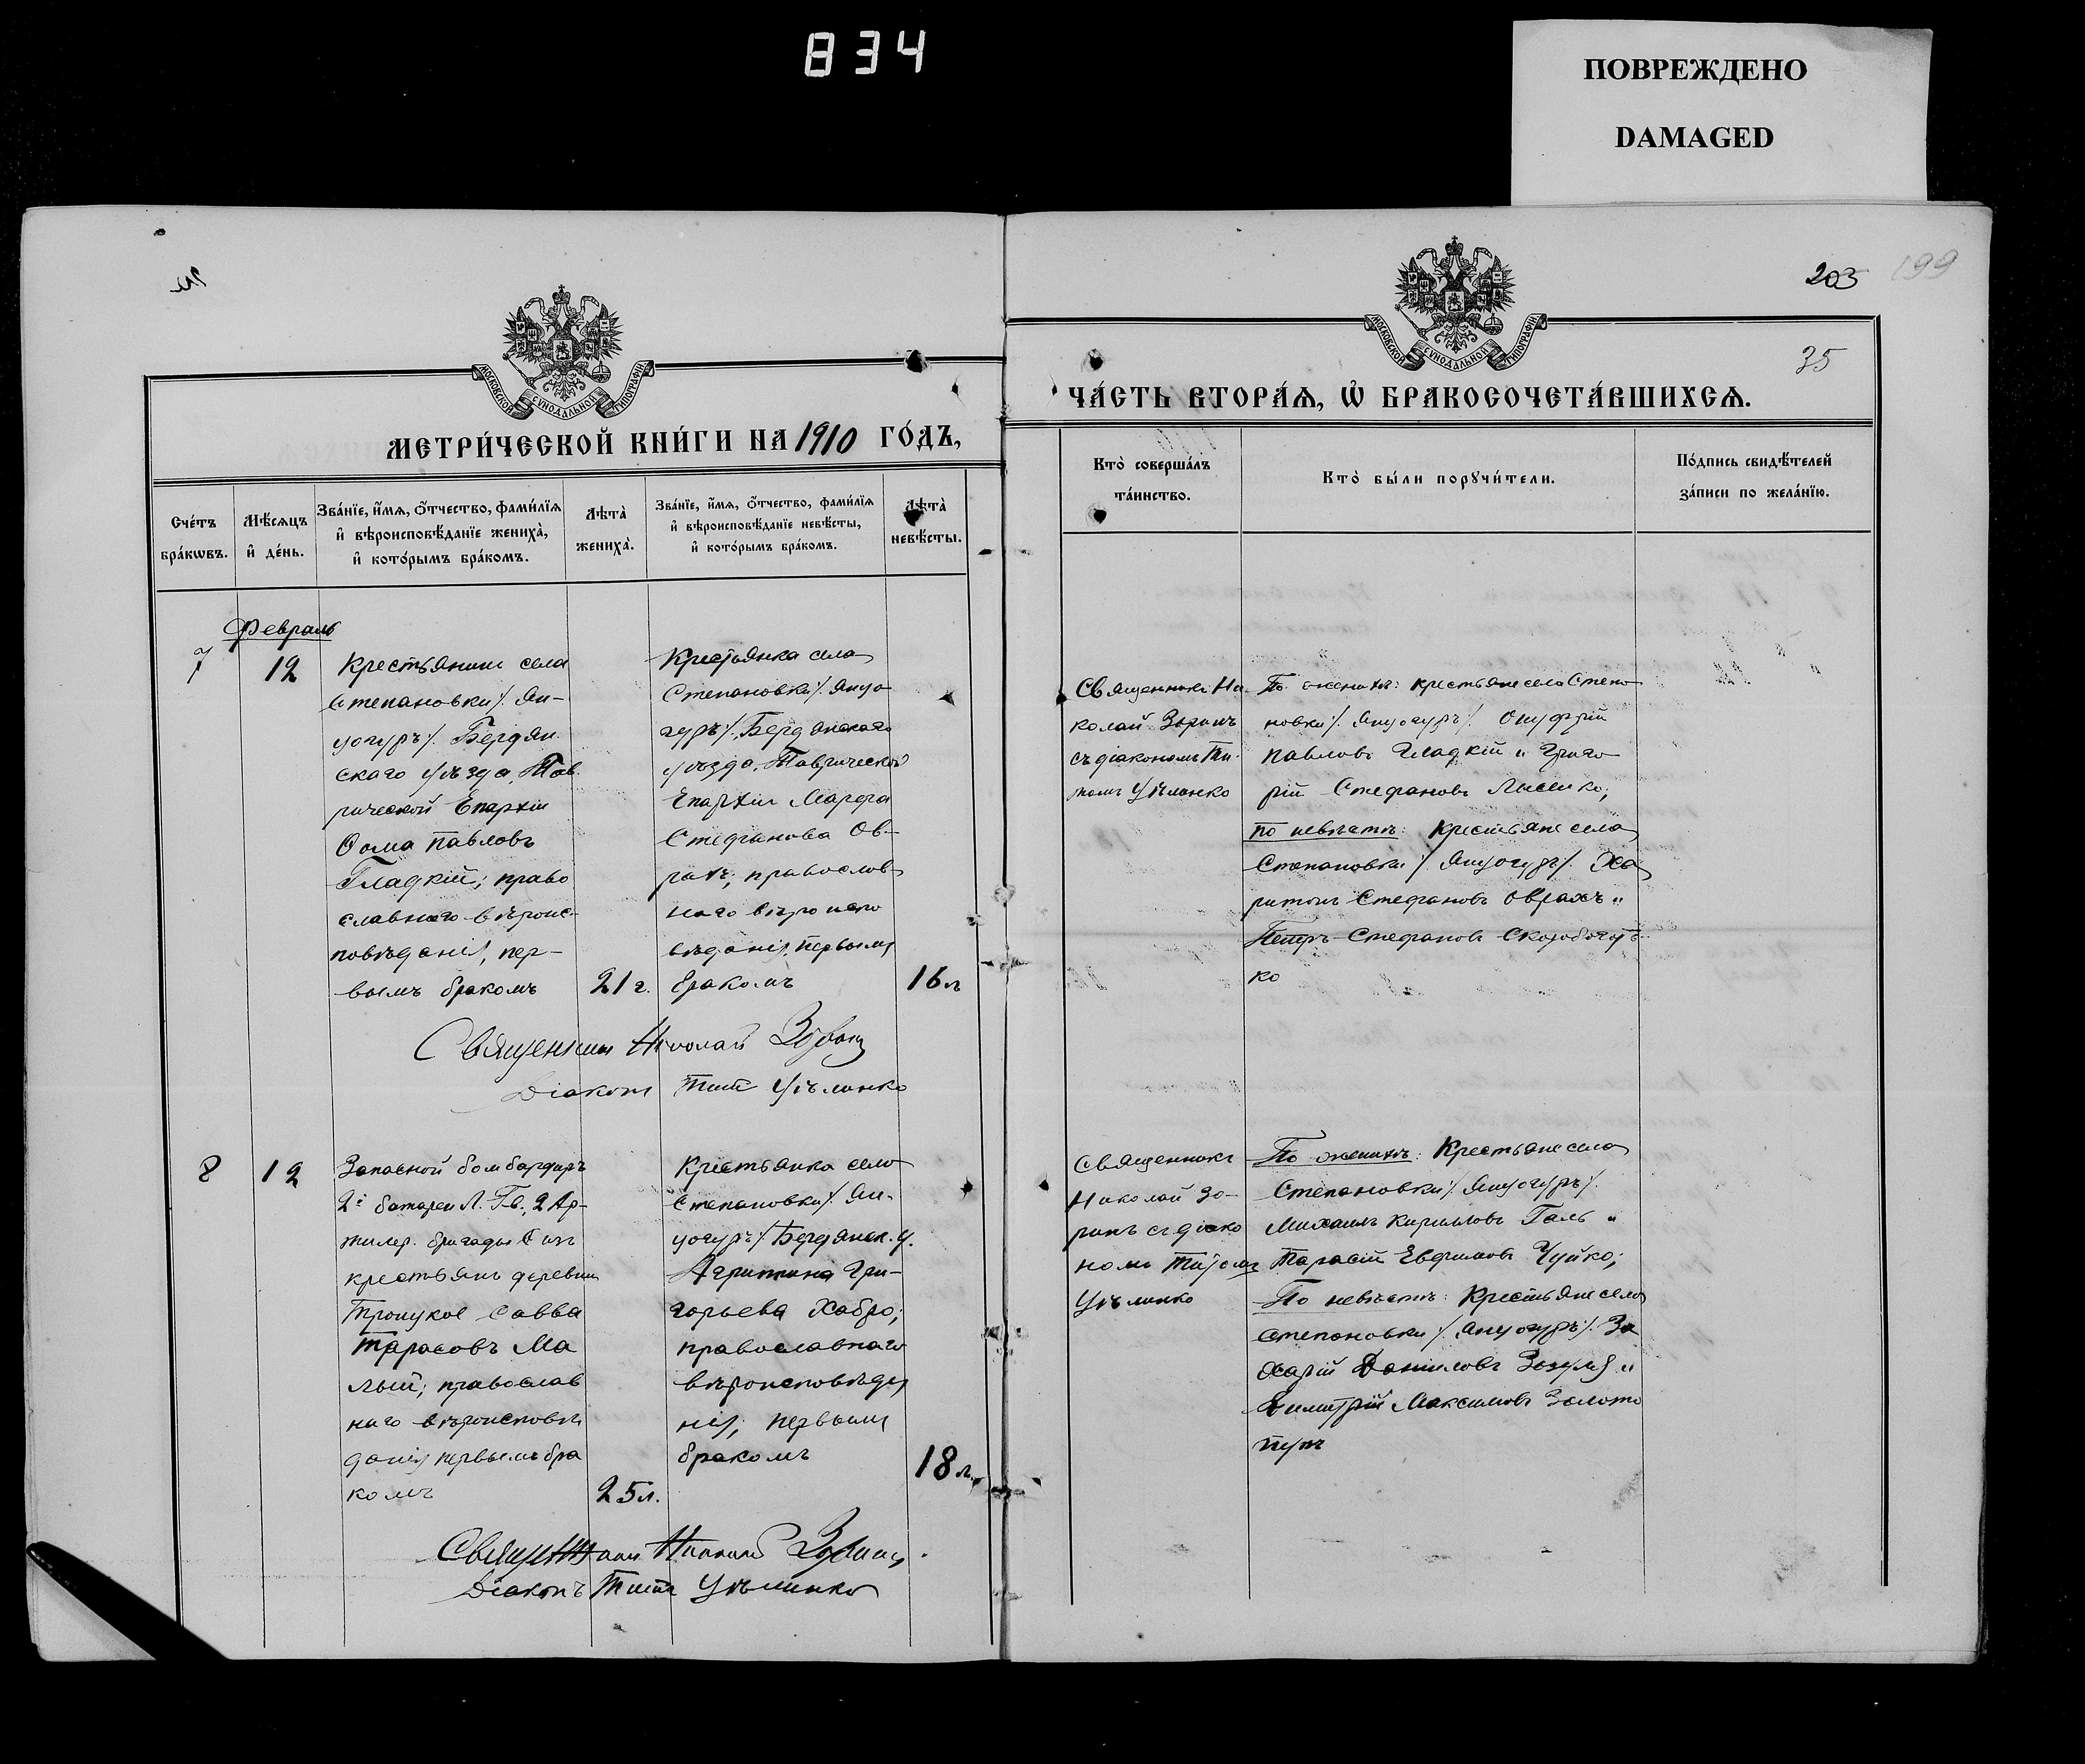 834
ПОВРЕЖДЕНО
DAMAGED
203
199
35
МОСКОВСКОЙ СѴНОДАЛЬНОЙ ТИПОГРАФІИ
МОСКОВСКОЙ СѴНОДАЛЬНОЙ ТИПОГРАФІИ
МЕТРИ́ЧЕСКОЙ КНИ́ГИ НА 1910 ГО́ДЪ,
ЧА́СТЬ ВТОРА́Ѧ, Ѡ҆ БРАКОСОЧЕТА́ВШИХСѦ.
Сче́тъ
бра́кѡвъ.
Мѣ́сѧцъ
и҆ де́нь.
Зва́нїе, и҆́мѧ, ѻ҆́тчество, фами́лїѧ
и҆ вѣроисповѣ́данїе жениха̀,
и҆ кото́рымъ бра́комъ.
Лѣта̀
жениха̀.
Зва́нїе, и҆́мѧ, ѻ҆́тчество, фами́лїѧ
и҆ вѣроисповѣ́данїе невѣ́сты,
и҆ кото́рымъ бра́комъ.
Лѣта̀
невѣ́сты.
Кто̀ соверша́лъ
та́инство.
Кто̀ бы́ли порꙋчи́тели.
По́дпись свидѣ́телей
за́писи по жела́нїю.
Февраль
7
12
Крестьянинъ села
Степановки /. Ян-
чогуръ /. Бердян
скаго уѣзда, Тав.
рической Епархіи
Ѳома Павловъ
Гладкій; право
славнаго вѣроис-
повѣданія, пер-
вымъ бракомъ
21 г.
Крестьянка села
Степановки /. Янчо
гуръ /. Бердянскаго
уѣзда, Таврической
Епархіи Марфа
Стефанова Ов-
рахъ; православ
наго вѣроиспо
вѣданія, первымъ
бракомъ
16 л
Священникъ Ни-
колай Зоринъ
съ діакономъ Ти-
томъ
По женихѣ: крестьяне села Степа
новки /. Янчогуръ /. Онуфрій
Павловъ Гладкій и Григо
рій Стефановъ Лысенко;
по невѣстѣ: Крестьяне села
Степановки /. Янчогуръ /. Ха
ритонъ Стефановъ Оврахъ и
Петръ Стефановъ Скоробогать
ко
Священникъ Николай Зоринъ
Діаконъ Титъ
8
12
Запасной бомбардиръ
2й батареи Л. Гв., 2 Ар-
тилер. бригады изъ
крестьянъ деревни
Савва
Тарасовъ Ма
лый; православ
наго вѣроисповѣ
данія первымъ бра
комъ
25 л.
Крестьянка села
Степановки /. Ян-
чогуръ /. Бердянск. у.
Агрипина Гри-
горьева Хабро;
православнаго
вѣроисповѣда
нія; первымъ
бракомъ
18 л.
Священникъ
Николай Зо-
ринъ съ діако
номъ Титомъ
По женихѣ: Крестьяне села
Степановки /. Янчогуръ /.
Михаилъ Кирилловъ Галь и
Тарасій Евфимовъ Чуйко;
По невѣстѣ: Крестьяне села
Степановки /. Янчогуръ /. За
харій Даниловъ Зозуля и
Димитрій Максимовъ Золото
пупъ
Священникъ Николай Зоринъ.
Діаконъ Титъ